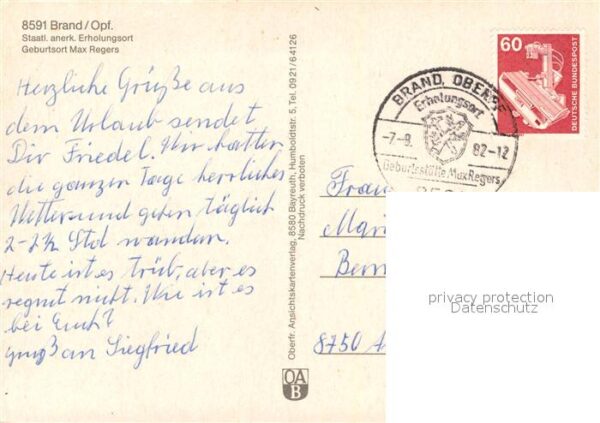 8591 Brand/Opf.
Staatl. anerk. Erholungsort
Geburtsort Max Regers
Herzliche Grüße aus
dem Urlaub sendet
Dir Friedel. Wir hatten
die ganzen Tage herrliches
Wetter und gehen täglich
2-2½ Std wandern.
Heute ist es trüb, aber es
regnet nicht. Wie ist es
bei Euch?
Gruß an Siegfried
Oberfr. Ansichtskartenverlag, 8580 Bayreuth, Humboldtstr. 5, Tel. 0921/64126
Nachdruck verboten
OA
B
BRAND, OBERPF
Erholungsort
-7.-9. 82-12
Geburtsstätte Max Regers
60
DEUTSCHE BUNDESPOST
Frau
Mari
Bern
8750 A
privacy protection
Datenschutz